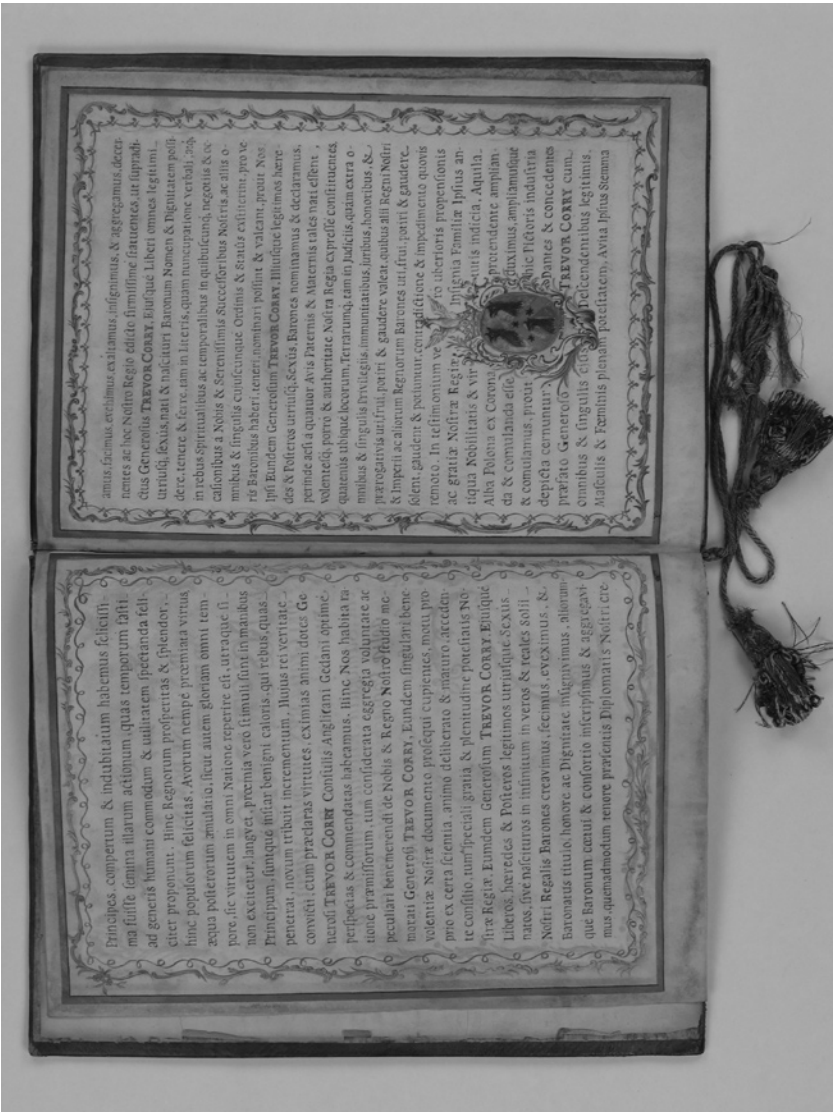 Principes, compertum & indubitatum habemus feliciſſi-
ma fuiſſe ſemina illarum actionum, quas temporum faſti
ad generis humani commodum & utilitatem ſpectanda feli-
citer proponunt. Hinc Regnorum proſperitas & ſplendor,
hinc populorum felicitas. Avorum nempe præmiata virtus
æqua poſterorum æmulatio, ſicut autem gloriam omni tem-
pore, ſic virtutem in omni Natione reperire eſt, utraque ſi-
non excitetur, langvet, præmia vero ſtimuli ſunt in manibus
Principum, ſuntque inſtar benigni caloris, qui rebus, quas
penetrat, novum tribuit incrementum. Hujus rei veritate
convicti, cum præclaras virtutes, eximias animi dotes Ge
neroſi TREVOR CORRY Conſulis Anglicani Gedani optime
perſpectas & commendatas habeamus. Hinc Nos habita ra-
tione præmiſſorum, tum conſiderata eggregia voluntate ac
peculiari benemerendi de Nobis & Regno Noſtro ſtudio me-
morati Generoſi TREVOR CORRY, Eundem ſingulari bene-
volentiæ Noſtræ documento proſequi cupientes, motu pro
prio ex certa ſcientia, animo deliberato & maturo acceden-
te conſilio, tum ſpeciali gratia & plenitudine poteſtatis No-
ſtræ Regiæ, Eumdem Generoſum TREVOR CORRY Ejuſque
Liberos, hæredes & Poſteros legitimos utriuſque Sexus
natos, ſive naſcituros in infinitum in veros & reales Solii
Noſtri Regalis Barones creavimus, fecimus, eveximus, &
Baronatus titulo, honore ac Dignitate inſignivimus, aliorum-
que Baronum cœtui & conſortio inſcripſimus & aggregavi
mus, quemadmodum tenore præſentis Diplomatis Noſtri cre-
amus, facimus, evehimus, exaltamus, inſignimus, & aggregamus, decer-
nentes ac hoc Noſtro Regio edicto firmiſſime ſtatuentes, ut ſupradi-
ctus Generoſus TREVOR CORRY, Ejuſque Liberi omnes legitimi
utriuſq, ſexus, nati & naſcituri Baronum Nomen & Dignitatem poſſi-
dere, tenere & ferre, tam in Literis, quam nuncupatione verbali, atq,
in rebus Spiritualibus ac temporalibus in quibuſcunq, negotiis & oc-
caſionibus a Nobis & Sereniſſimis Succeſſoribus Noſtris, ac aliis o-
mnibus & ſingulis cujuſcunque Ordinis & Statûs exſtiterint, pro ve
ris Baronibus haberi, teneri, nominari poſſint & valeant, prout Nos
Ipſi Eundem Generoſum TREVOR CORRY, Illiuſque legitimos hære-
des & Poſteros utriuſq, Sexûs, Barones nominamus & declaramus,
perinde acſi a quatuor Avis Paternis & Maternis tales nati eſſent,
volenteſq, porro & authoritate Noſtra Regia expreſſe conſtituentes,
quatenus ubique locorum, Terrarumq, tam in Judiciis, quam extra o-
mnibus & ſingulis Privilegiis, immunitatibus, juribus, honoribus, &
prærogativis uti, frui, potiri & gaudere valeat, quibus alii Regni Noſtri
& Imperii ac aliorum Regnorum Barones uti, frui, potiri & gaudere
ſolent, gaudent & potiuntur, contradictione & impedimento quovis
remoto. In teſtimonium ve ro uberioris propenſionis
ac gratiæ Noſtræ Regiæ, Inſignia Familiæ Ipſius an-
tiqua Nobilitatis & vir tutis indicia, Aquila
Alba Polona ex Corona protendente amplian-
da & comulanda eſſe duximus, ampliamuſque
& comulamus, prout hic Pictoris induſtria
depicta cernuntur, Dantes & concedentes
præfato Generoſo TREVOR CORRY cum
omnibus & ſingulis ejus Deſcendentibus legitimis,
Maſculis & Fœminis plenam poteſtatem, Avita Ipſius Stemma